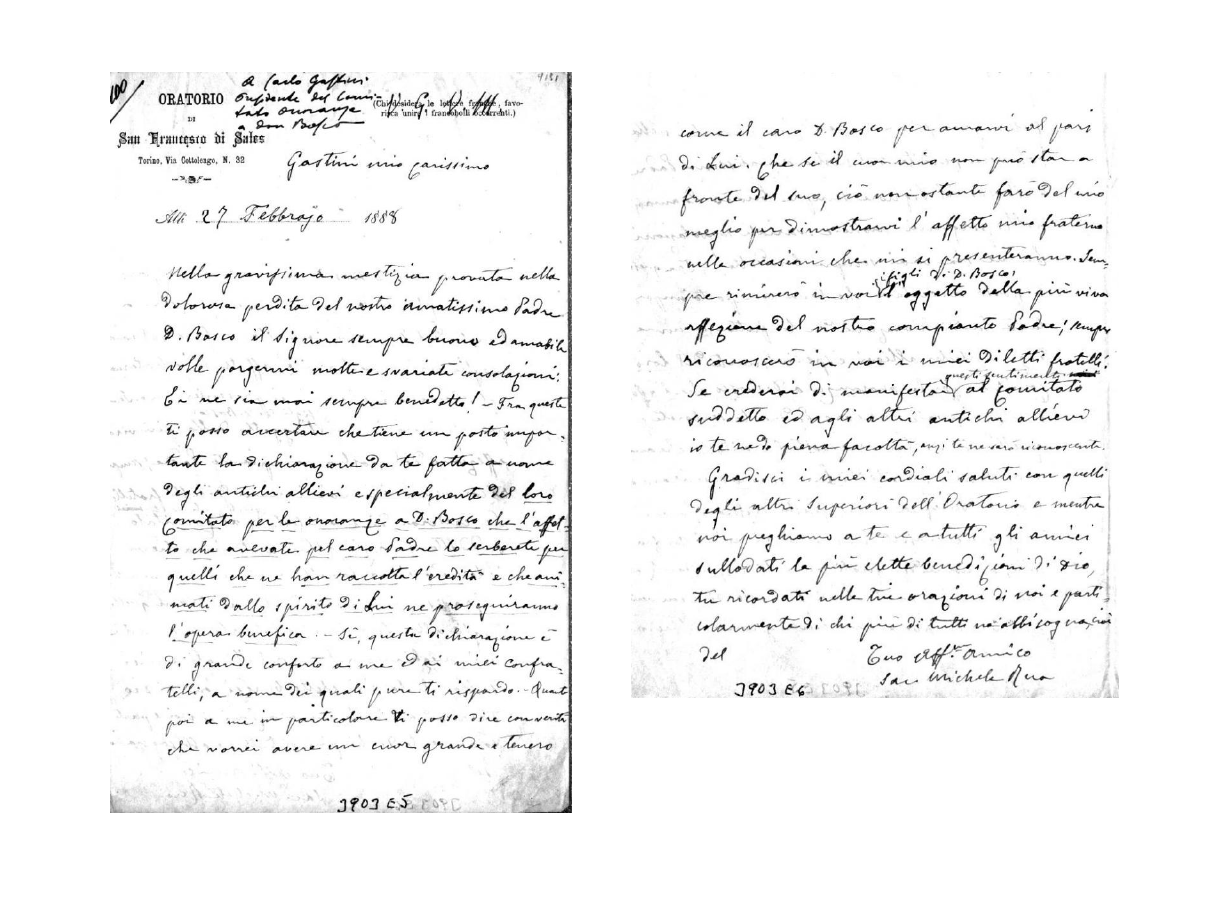 100
9131
A Carlo Gastini
Presidente del Comi-
tato onoranze
a don Bosco
ORATORIO
DI
San Francesco di Sales
Torino, Via Cottolengo, N. 32
(Chi desidera le lettere franche, favo-
risca unire i francobolli occorrenti.)
Gastini mio carissimo
Alli 27 Febbrajo 1888
Nella gravissima mestizia provata nella
dolorosa perdita del nostro amatissimo Padre
D. Bosco il Signore sempre buono ed amabile
volle porgermi molte e svariate consolazioni:
Ei ne sia mai sempre benedetto! – Fra queste
ti posso accertare che tiene un posto impor-
tante la dichiarazione da te fatta a nome
degli antichi allievi e specialmente del loro
Comitato per le onoranze a D. Bosco che l'affet-
to che avevate pel caro Padre lo serberete per
quelli che ne han raccolta l'eredità e che ani-
mati dallo spirito di Lui ne proseguiranno
l'opera benefica. – Sì, questa dichiarazione è
di grande conforto a me ed ai miei confra-
telli, a nome dei quali pure ti rispondo. – Quant
poi a me in particolare ti posso dire con verità
che vorrei avere un cuor grande e tenero
3903 E5
come il caro D. Bosco per amarvi al pari
di Lui. Che se il cuor mio non può star a
fronte del suo, ciò non ostante farò del mio
meglio per dimostrarvi l'affetto mio fraterno
nelle occasioni che mi si presenteranno. Sem-
i figli di D. Bosco!
pre rimirerò in voi l'oggetto della più viva
affezione del nostro compianto Padre; sempre
riconoscerò in voi i miei diletti fratelli!
questi sentimenti
Se crederai di manifestar al Comitato
suddetto ed agli altri antichi allievi
io te ne do piena facoltà, anzi te ne sarò riconoscente.
Gradisci i miei cordiali saluti con quelli
degli altri Superiori dell'Oratorio e mentre
noi preghiamo a te e a tutti gli amici
sullodati le più elette benedizioni di Dio,
tu ricordati nelle tue orazioni di noi e parti-
colarmente di chi più di tutti ne abbisogna cioè
del Tuo Aff.º Amico
Sac. Michele Rua
3903 E6